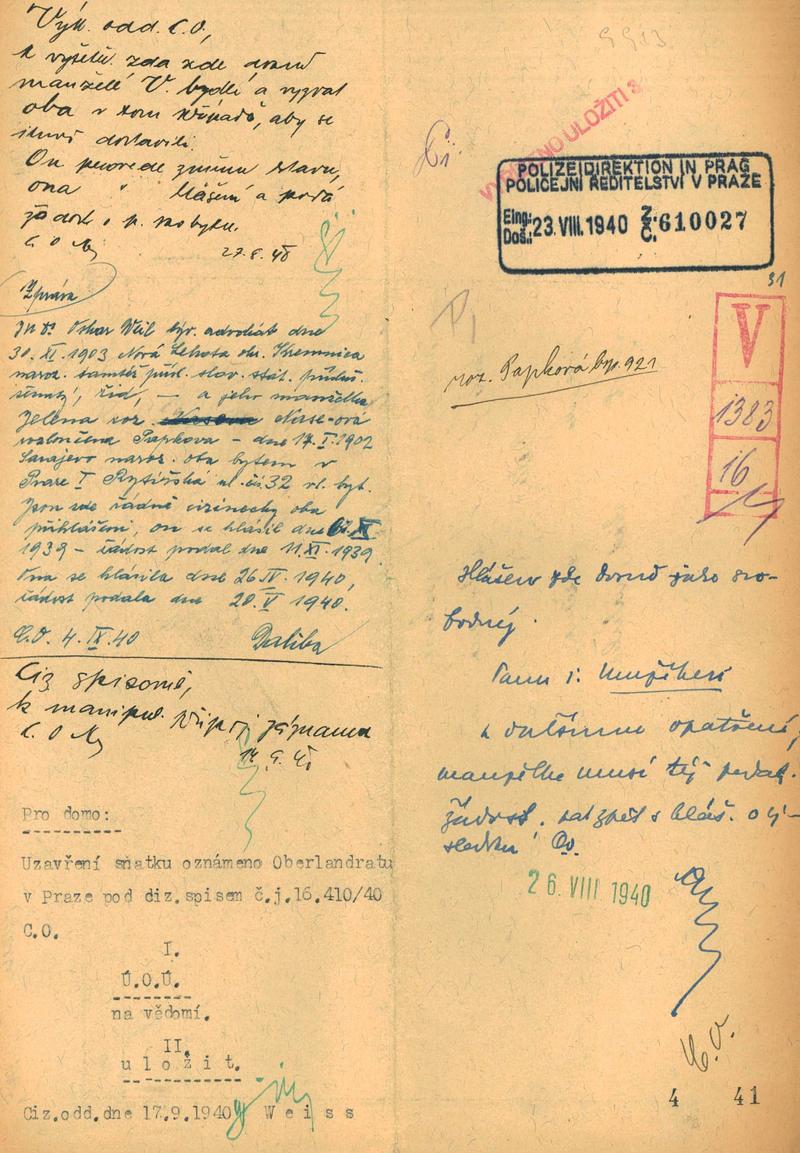 Výk. odd. C.O,
k vyšetř. zda zde dosud
manželé V. bydlí a vyzvat
oba v tom případě, aby se
ihned dostavili.
On provede změnu stavu,
ona " hlášení a podá
žádost o p. pobytu.
C O
27.8.40
Zpráva
JUDr Oskar Weil býv. advokát dne
30. XI. 1903 Nová Lehota okr. Kremnica
naroz. tamtéž přísl. slov. stát. přísluš.
žid, — a jeho manželka
Jelena roz. Nasse-ová
rozloučená Papkova – dne 17. I. 1902
Sarajevo naroz. oba bytem v
Praze I Rytířská ul. čís. 32 vl. byt.
Jsou zde řádně cizinecky oba
přihlášeni, on se hlásil dne XI
1939 – žádost podal dne 11.XI.1939.
Ona se hlásila dne 26.IV. 1940,
žádost podala dne 20.V 1940.
C.O. 4. IX. 40 Daliba
Ciz. spisovně,
k manipul. připoj záznamu
C. O
14 9. 40
Pro domo:
Uzavření sňatku oznámeno Oberlandratu
v Praze pod diz.spisem č.j.16.410/40
C.O.
I.
Ú.O.Ú.
na vědomí.
II.
uložit.
Ciz.odd.dne 17.9.1940 Weiss
9913
ULOŽITI
POLIZEIDIREKTION IN PRAG
POLICEJNÍ ŘEDITELSTVÍ V PRAZE
Eing.: Doš.: 23.VIII.1940 Z.: Č.: 610027
31
V
1383
16
roz. Papková 921
Hlášen zde dosud jako svo-
bodný.
Panu i.
k dalšímu opatření,
manželka musí též podat
žádost. zpět s hláš. o vý-
sledku!
26. VIII 1940
4 41